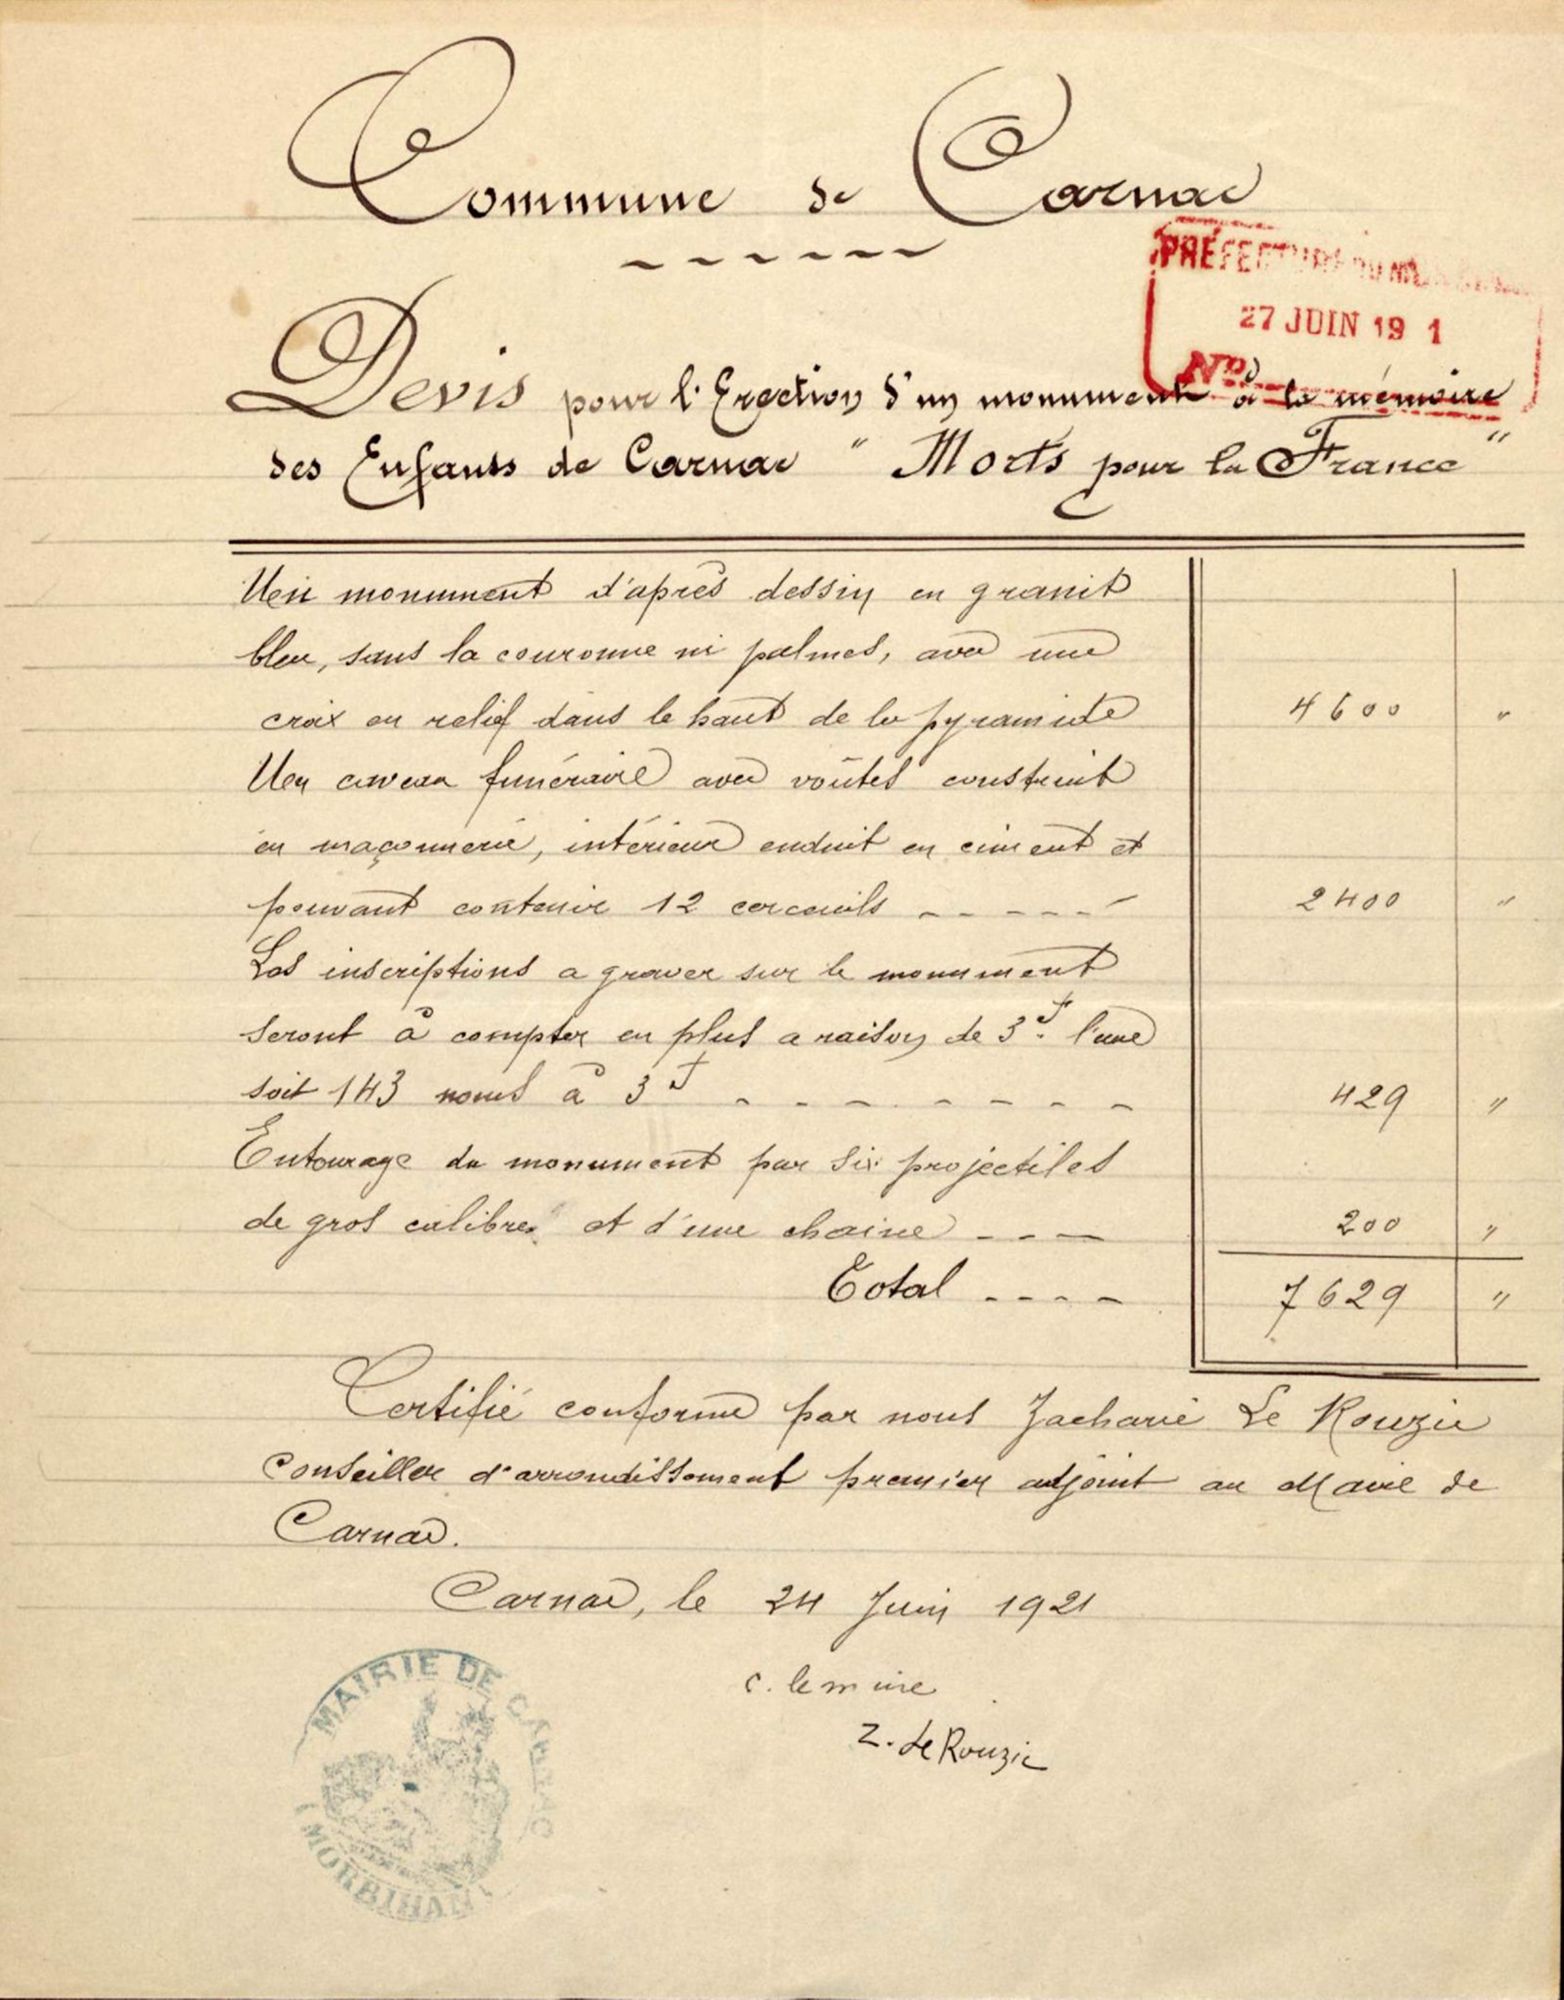 Commune de Carnac
PRÉFECTURE DU MORBIHAN
27 JUIN 19 1
No
Devis pour l'Erection d'un monument à la mémoire
des Enfants de Carnac " Morts pour la France "
Un monument d'après dessin en granit
bleu, sans la couronne ni palmes, avec une
croix en relief dans le haut de la pyramide 4600 "
Un caveau funéraire avec voûtes construit
en maçonnerie, intérieur enduit en ciment et
pouvant contenir 12 cercueils - - - - - 2400 "
Les inscriptions a graver sur le monument
seront à compter en plus a raison de 3f. l'une
soit 143 noms à 3f - - - - - - - - 429 "
Entourage du monument par six projectiles
de gros calibre et d'une chaine - - - 200 "
Total - - - - 7629 "
Certifié conforme par nous Zacharie Le Rouzic
Conseiller d'arrondissement premier adjoint au Maire de
Carnac.
Carnac, le 24 Juin 1921
Z. Le Rouzic
MAIRIE DE CARNAC
(MORBIHAN)